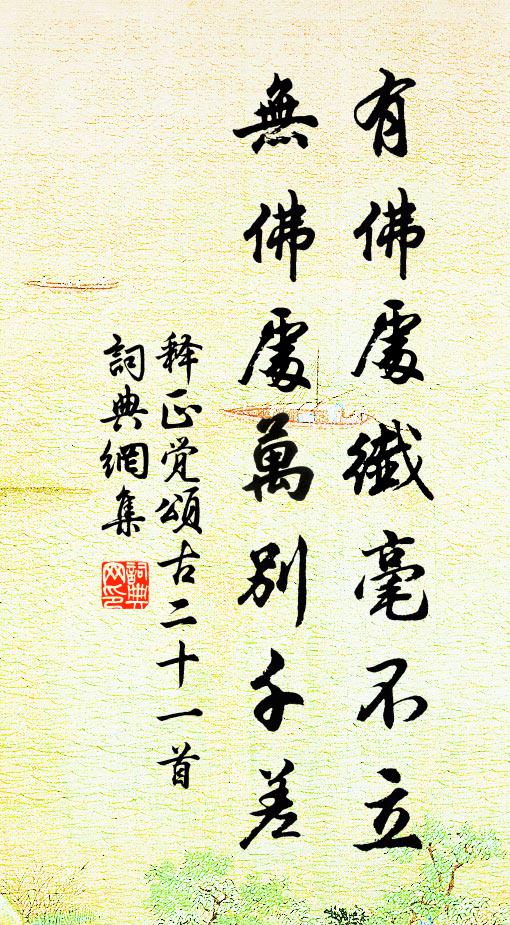 有佛處纖毫不立
無佛處萬別千差
释正觉頌古二十一首
詞典網集
詞典网印